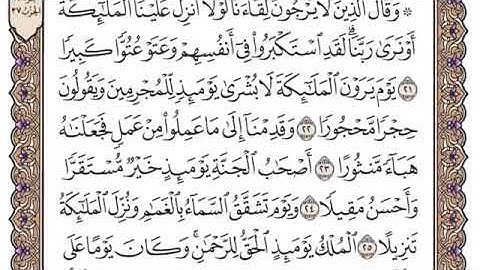 الحزب ٣٧
۞ وَقَالَ ٱلَّذِينَ لَا يَرۡجُونَ لِقَآءَنَا لَوۡلَآ أُنزِلَ عَلَيۡنَا ٱلۡمَلَٰٓئِكَةُ
أَوۡ نَرَىٰ رَبَّنَاۗ لَقَدِ ٱسۡتَكۡبَرُواْ فِيٓ أَنفُسِهِمۡ وَعَتَوۡ عُتُوّٗا كَبِيرٗا
٢١ يَوۡمَ يَرَوۡنَ ٱلۡمَلَٰٓئِكَةَ لَا بُشۡرَىٰ يَوۡمَئِذٖ لِّلۡمُجۡرِمِينَ وَيَقُولُونَ
حِجۡرٗا مَّحۡجُورٗا ٢٢ وَقَدِمۡنَآ إِلَىٰ مَا عَمِلُواْ مِنۡ عَمَلٖ فَجَعَلۡنَٰهُ
هَبَآءٗ مَّنثُورًا ٢٣ أَصۡحَٰبُ ٱلۡجَنَّةِ يَوۡمَئِذٍ خَيۡرٞ مُّسۡتَقَرّٗا
وَأَحۡسَنُ مَقِيلٗا ٢٤ وَيَوۡمَ تَشَقَّقُ ٱلسَّمَآءُ بِٱلۡغَمَٰمِ وَنُزِّلَ ٱلۡمَلَٰٓئِكَةُ
تَنزِيلًا ٢٥ ٱلۡمُلۡكُ يَوۡمَئِذٍ ٱلۡحَقُّ لِلرَّحۡمَٰنِۚ وَكَانَ يَوۡمًا عَلَى